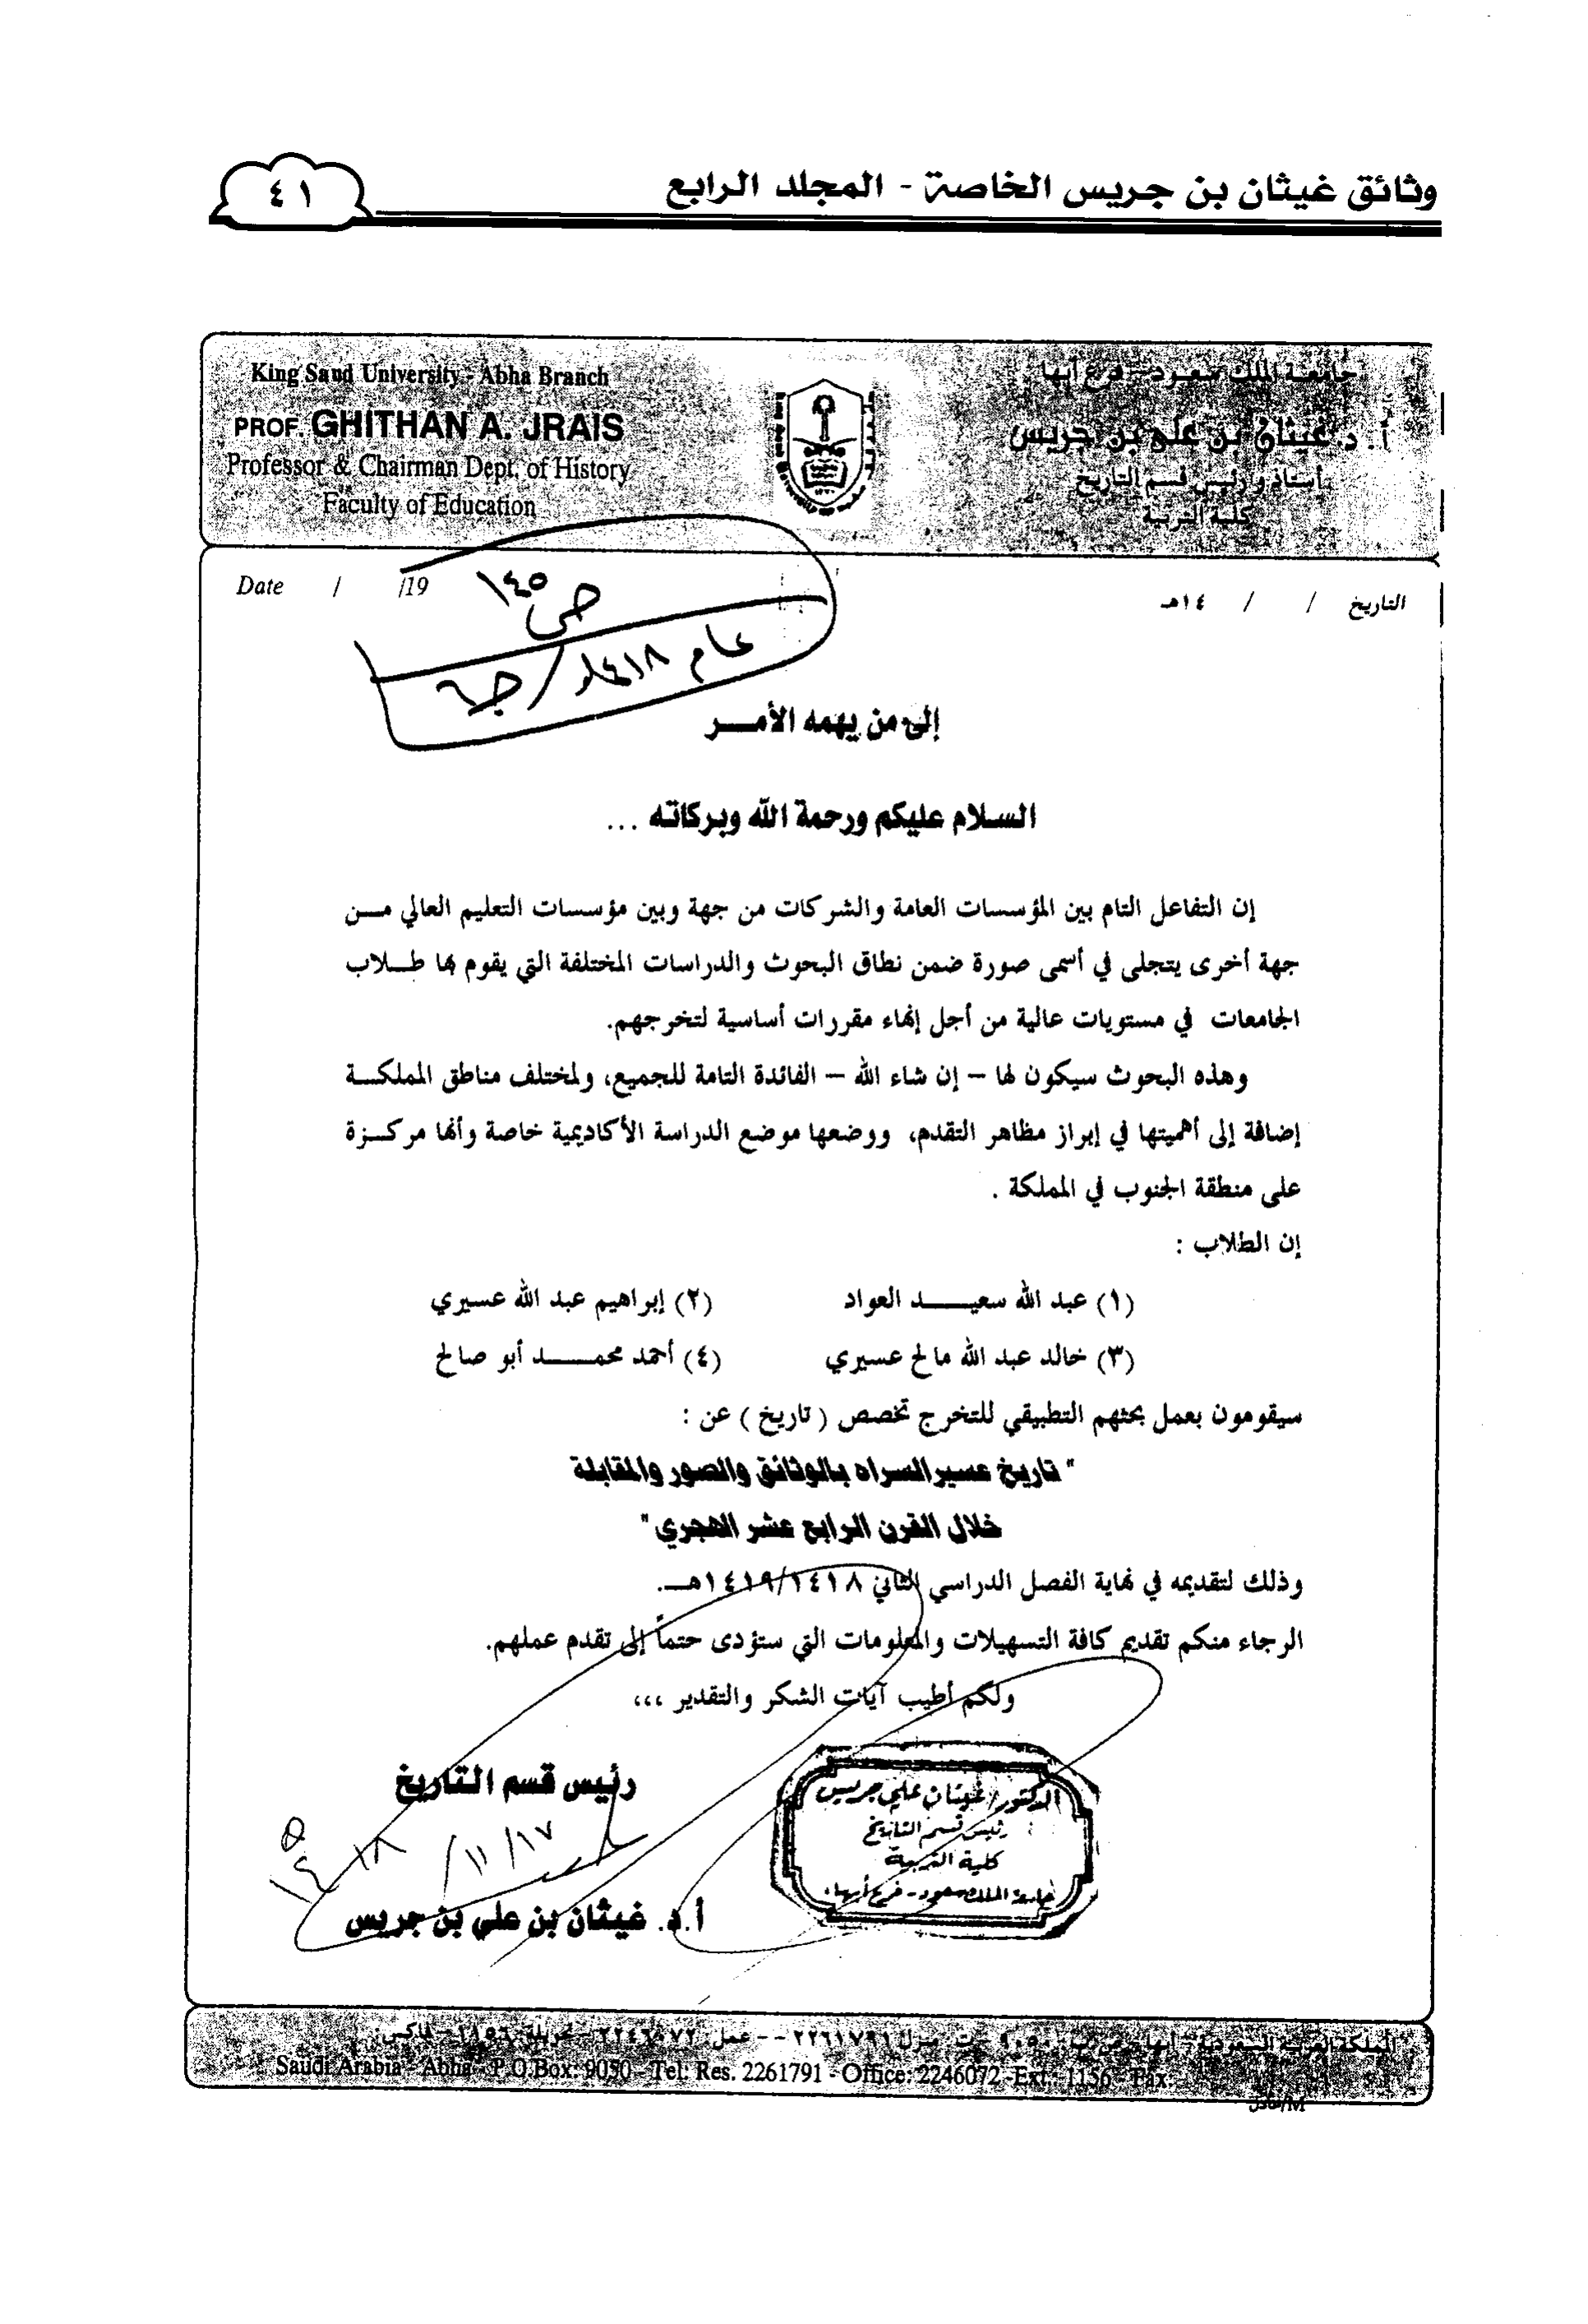 وثائق غيثان بن جريس الخاصة - المجلد الرابع
٤١
جامعة الملك سعود - فرع أبها
أ. د. غيثان بن علي بن جريس
أستاذ ورئيس قسم التاريخ
كلية التربية
King Saud University - Abha Branch
PROF. GHITHAN A. JRAIS
Professor & Chairman Dept. of History
Faculty of Education
التاريخ / / ١٤هـ
Date / /19
ص ١٤٥
عام ١٤١٨هـ/
إلى من يهمه الأمـــر
السلام عليكم ورحمة الله وبركاته ...
إن التفاعل التام بين المؤسسات العامة والشركات من جهة وبين مؤسسات التعليم العالي مـــن
جهة أخرى يتجلى في أسمى صورة ضمن نطاق البحوث والدراسات المختلفة التي يقوم بها طـــلاب
الجامعات في مستويات عالية من أجل إنهاء مقررات أساسية لتخرجهم.
وهذه البحوث سيكون لها – إن شاء الله – الفائدة التامة للجميع، ولمختلف مناطق المملكـــة
إضافة إلى أهميتها في إبراز مظاهر التقدم، ووضعها موضع الدراسة الأكاديمية خاصة وأنها مركـــزة
على منطقة الجنوب في المملكة .
إن الطلاب :
(١) عبد الله سعيـــــد العواد (٢) إبراهيم عبد الله عسيري
(٣) خالد عبد الله مالح عسيري (٤) أحمد محمـــــد أبو صالح
سيقومون بعمل بحثهم التطبيقي للتخرج تخصص ( تاريخ ) عن :
" تاريخ عسير السراه بالوثائق والصور والمقابلة
خلال القرن الرابع عشر الهجري "
وذلك لتقديمه في نهاية الفصل الدراسي الثاني ١٤١٩/١٤١٨هـــ.
الرجاء منكم تقديم كافة التسهيلات والمعلومات التي ستؤدى حتماً إلى تقدم عملهم.
ولكم أطيب آيات الشكر والتقدير ،،،
رئيس قسم التاريخ
١٧/ ١١/ ١٤١٨هـ
أ.د. غيثان بن علي بن جريس
الدكتور/ غيثان علي جريس
رئيس قسم التاريخ
كلية التربية
جامعة الملك سعود - فرع أبها
المملكة العربية السعودية - أبها - ص.ب: ٩٠٥٠ - ت: منزل ٢٢٦١٧٩١ - - عمل: ٢٢٤٦٠٧٢ - تحويلة: ١١٥٦ - فاكس:
Saudi Arabia - Abha - P.O.Box: 9050 - Tel: Res. 2261791 - Office: 2246072 - Ext.: 1156 - Fax: